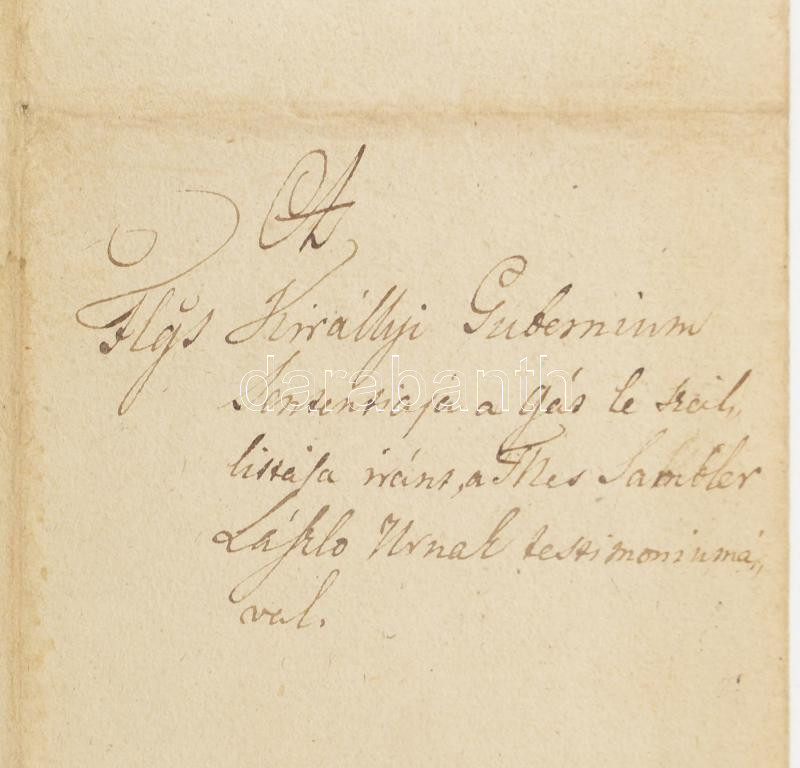 A
Flgs Királlyi Gubernium
Sententiaja a gás le szál„
littása iránt, a Ths Sambler
László Urnak testimoniumá„
val.
darabanth